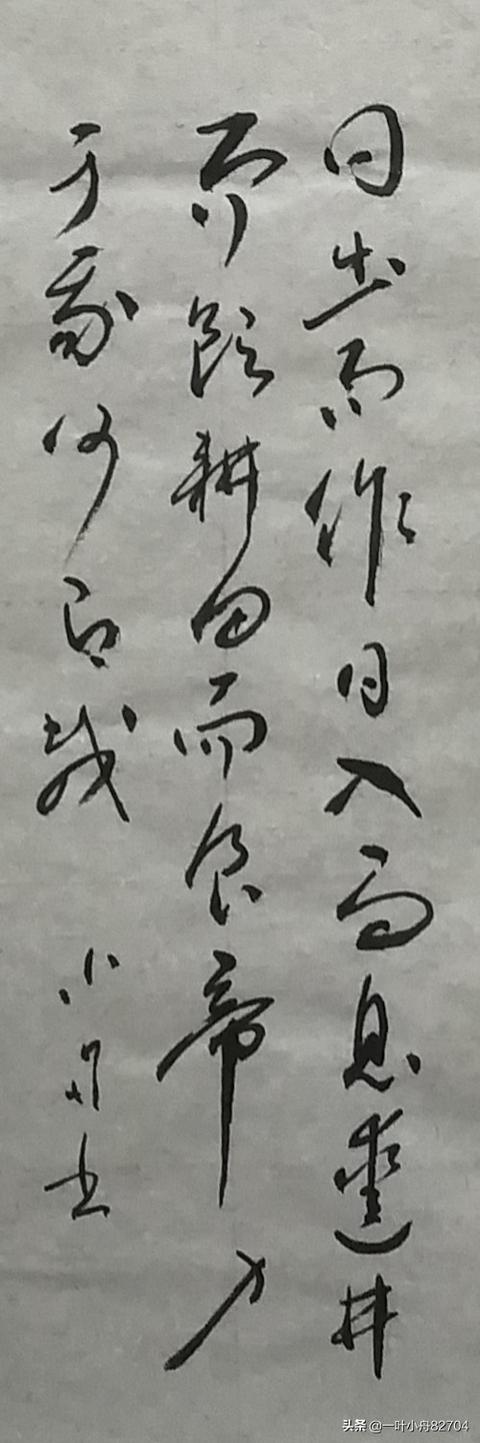 日出而作日入而息凿井
而饮耕田而食帝力
于我何有哉 小舟书
头条 @一叶小舟82704